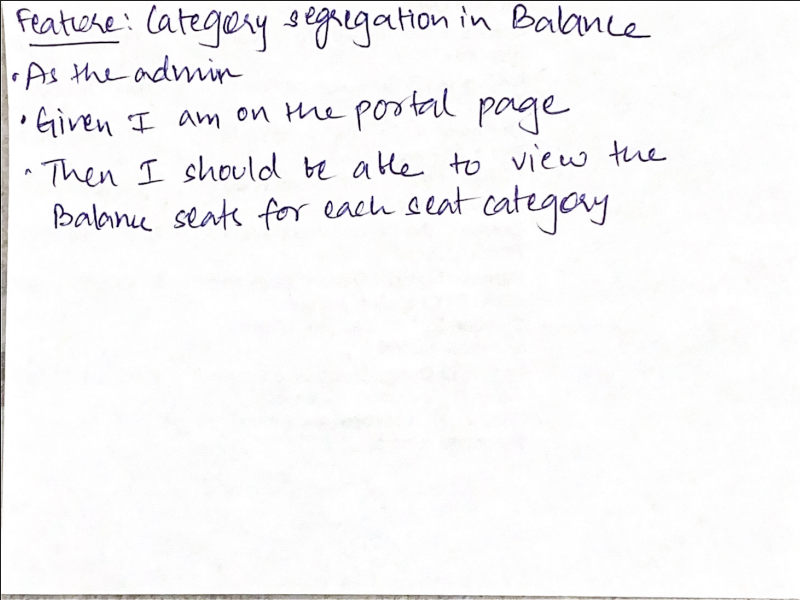 Feature: Category segregation in Balance
• As the admin
• Given I am on the portal page
• Then I should be able to view the
Balance seats for each seat category